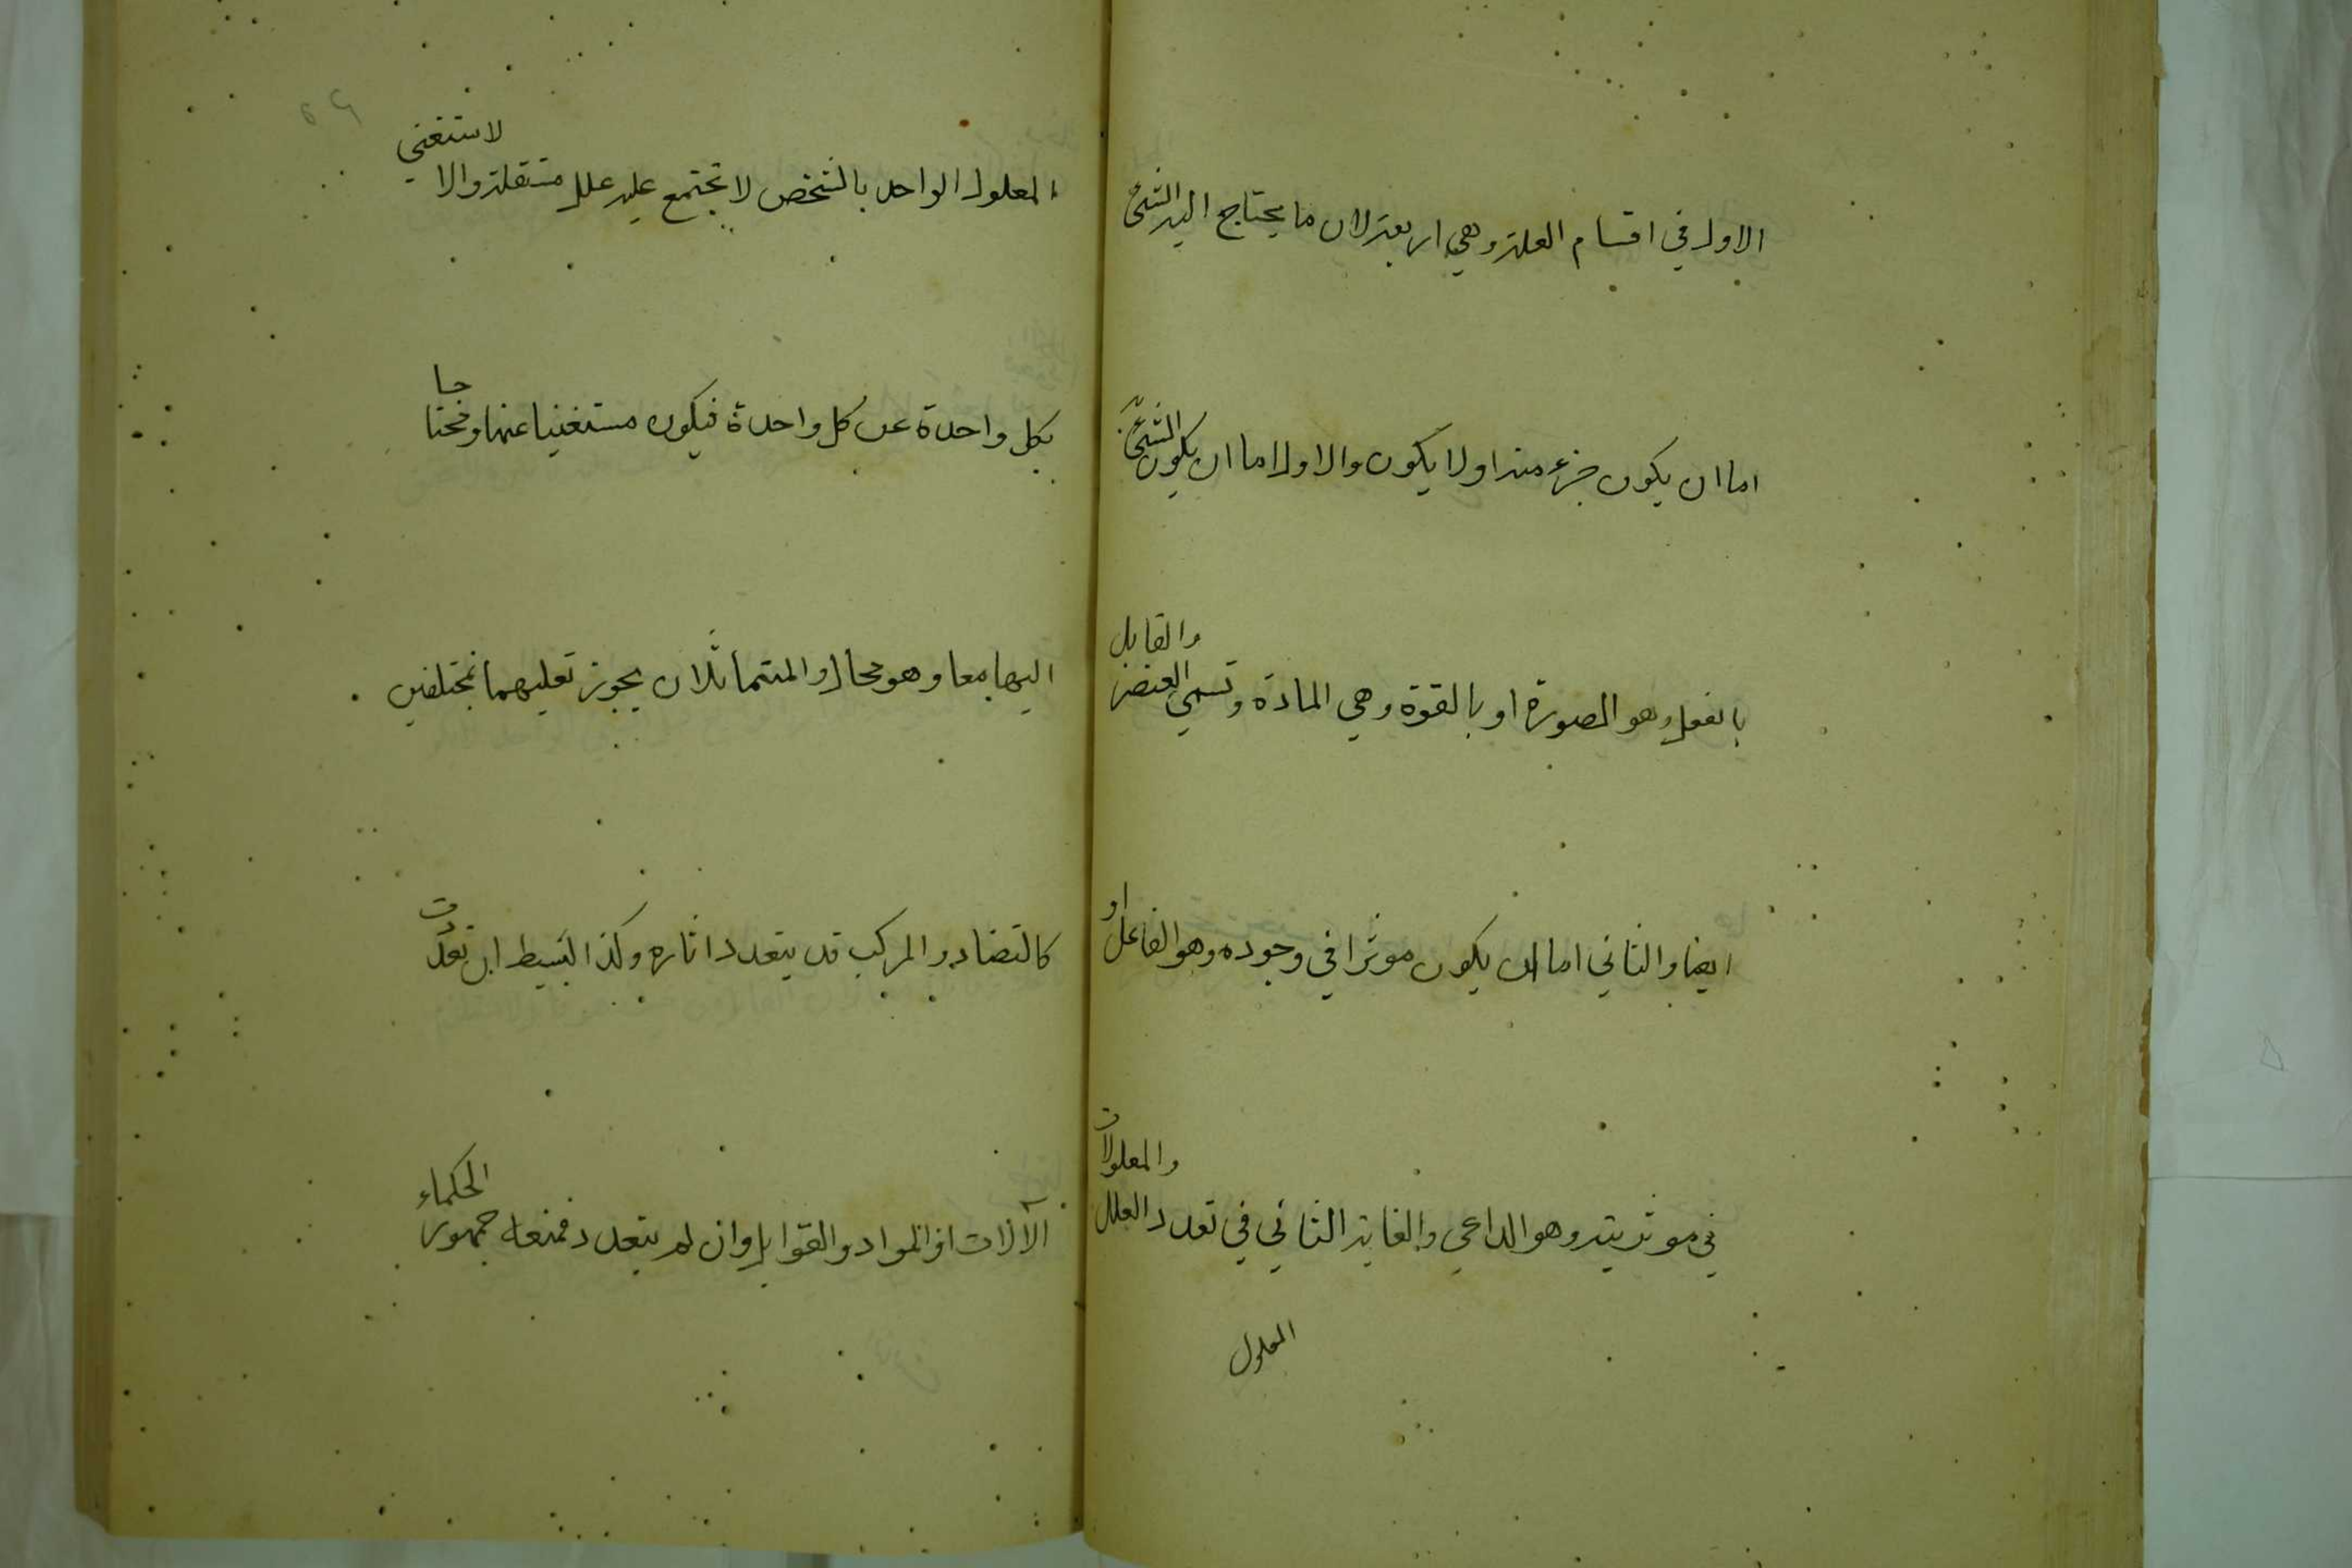 الاول في اقسام العلة وهي اربعة لان ما يحتاج اليه الشئ
اما ان يكون جزء منه او لا يكون والاول اما ان يكون الشئ به
بالفعل وهو الصورة او بالقوة وهي المادة وتسمي العنصر والقابل
ايضا والثاني اما ان يكون موثرا في وجوده وهو الفاعل او
في موثريته وهو الداعي والغاية الثاني في تعدد العلل والمعلولات
المعلول
المعلول الواحد بالشخص لا تجتمع عليه علل مستقلة والا لاستغني
بكل واحدة عن كل واحدة فيكون مستغنيا عنها ومحتاجا
اليها معا وهو محال والمتماثلان يجوز تعليلهما بمختلفين
كالتضاد والمركب قد يتعدد اثاره وكذا البسيط ان تعددت
الآلات او المواد والقوابل وان لم يتعدد فمنعه جمهور الحكماء